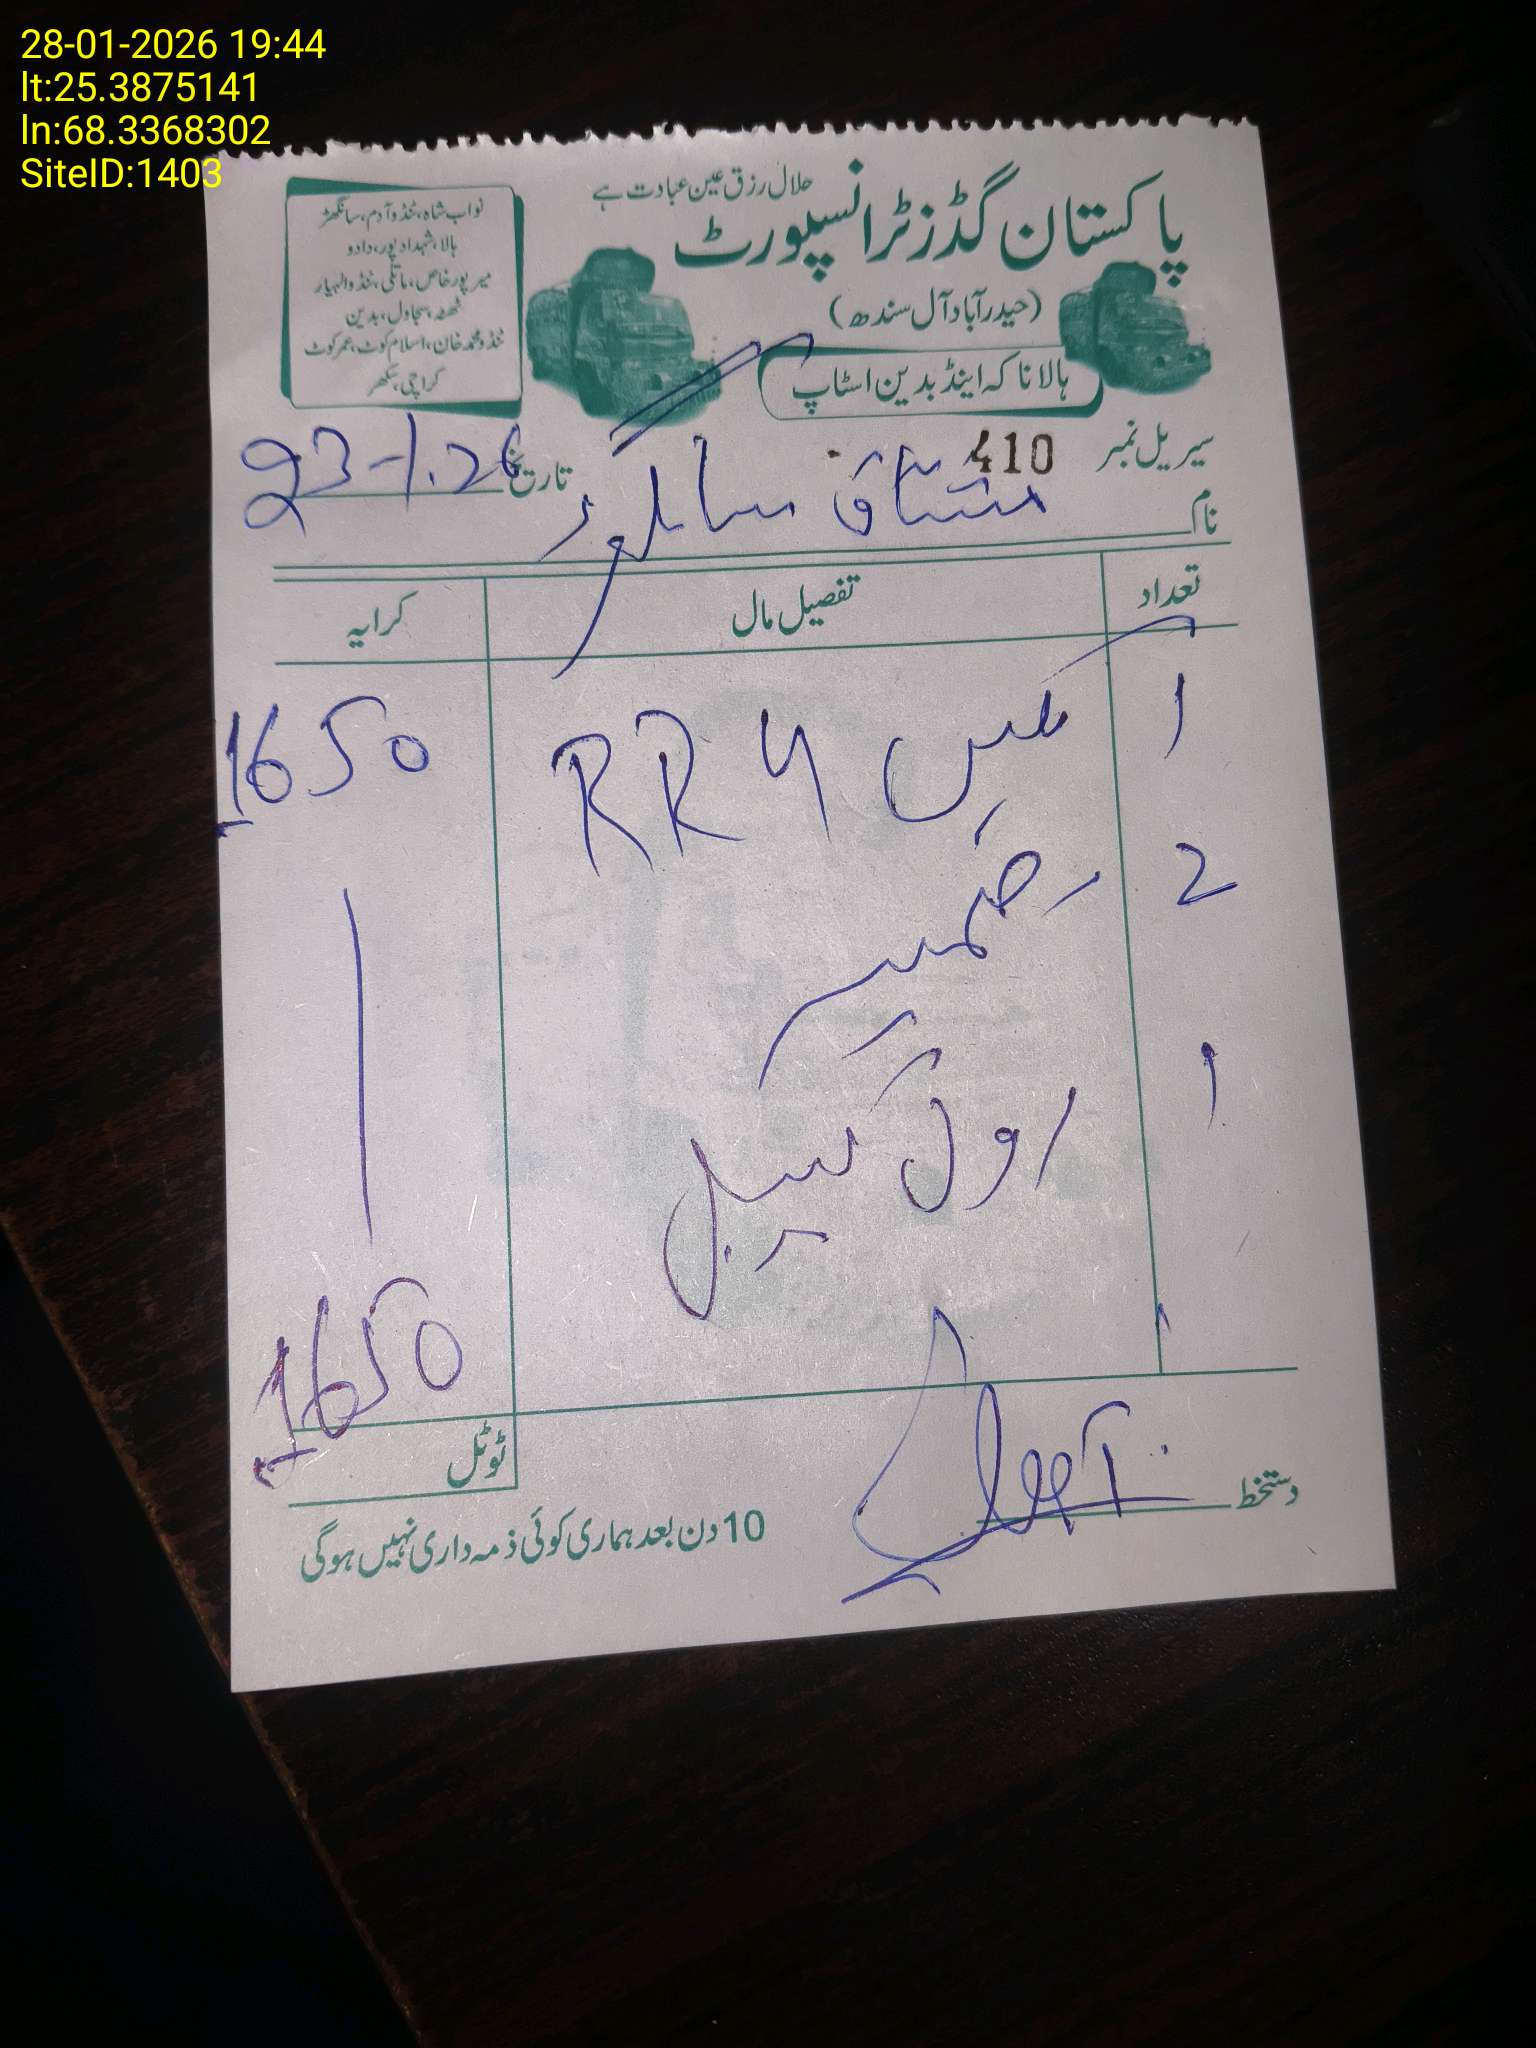 28-01-2026 19:44
lt:25.3875141
ln:68.3368302
SiteID:1403
حلال رزق عین عبادت ہے
پاکستان گڈز ٹرانسپورٹ
(حیدرآباد آل سندھ)
ہالا ناکہ اینڈ بدین اسٹاپ
نواب شاہ، ٹنڈو آدم، سانگھڑ
ہالا، شہداد پور، دادو
میرپور خاص، ماتلی، ٹنڈو الہیار
ٹھٹھہ، سجاول، بدین
ٹنڈو محمد خان، اسلام کوٹ، عمر کوٹ
کراچی، سکھر
سیریل نمبر 410
تاریخ 23-1.26
نام مشتاق
تعداد تفصیل مال کرایہ
1 RR 4 1650
2
1 رول کیبل
1650
ٹوٹل
دستخط
10 دن بعد ہماری کوئی ذمہ داری نہیں ہوگی